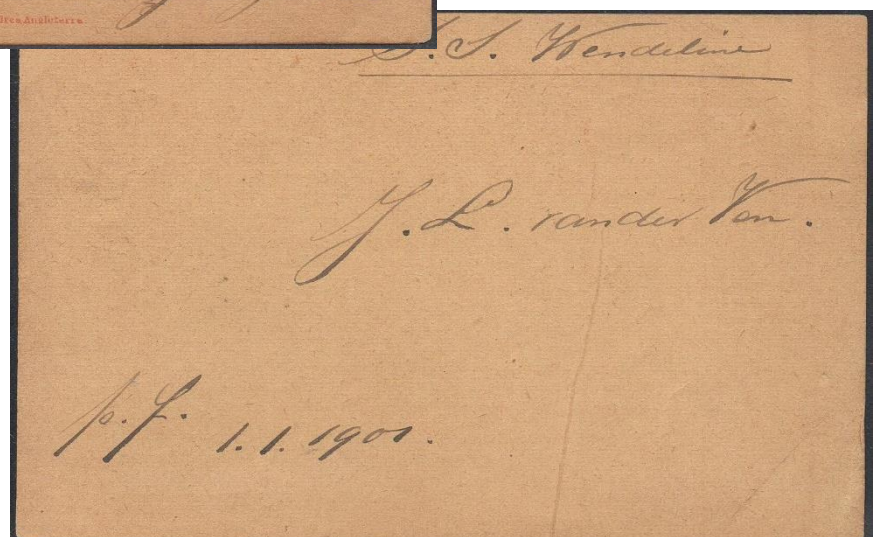 Angleterre
S. S. Wendeline
J. L. vander Ven.
p. f. 1.1.1901.